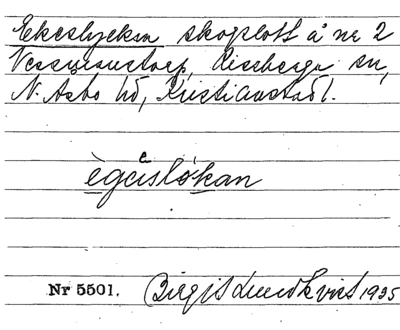 Ekeslyckan skogslott å nr 2
Vessmantorp, Risseberga sn,
N. Asbo hd, Kristianstad l.
è̱gəisló̱kan
Nr 5501. Birgit Lundkvist 1935